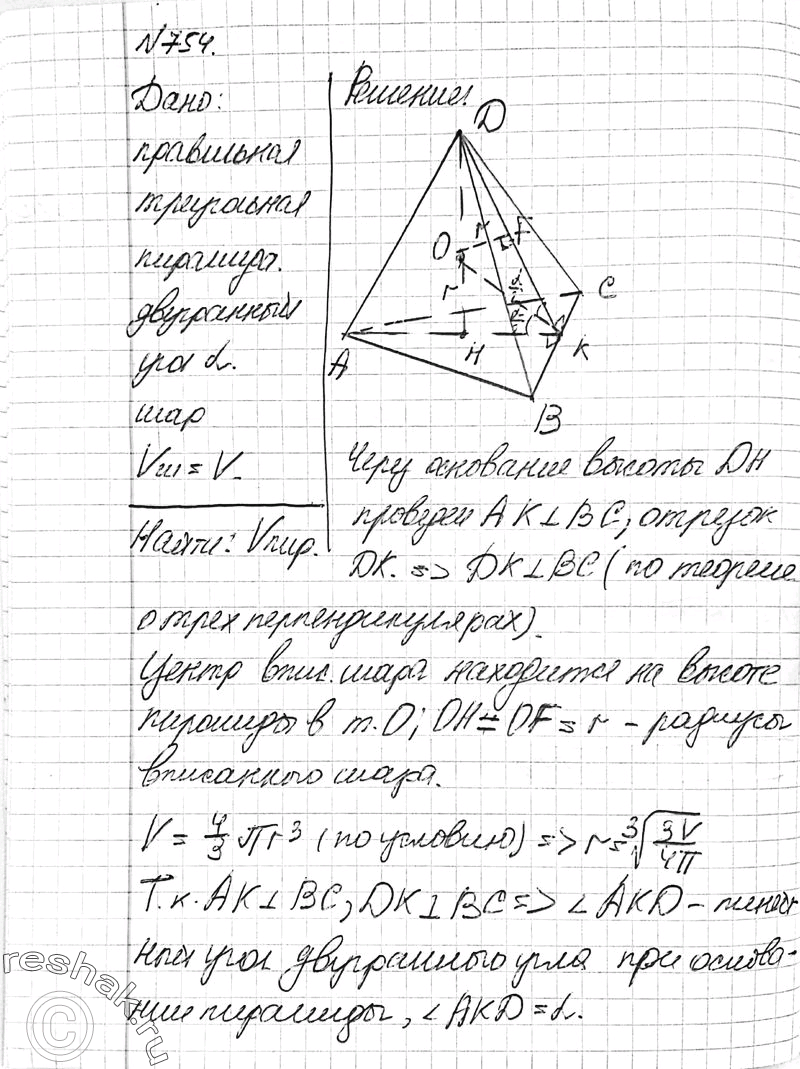 №754.
Дано:
правильная
треугольная
пирамида.
двугранный
угол α.
шар
Vш = V.
Найти: Vпир.
Решение:
D
O r F
r
A H K C
B
Через основание высоты DH
проведем AK⊥BC, отрезок
DK. => DK⊥BC (по теореме
о трех перпендикулярах).
Центр впис. шара находится на высоте
пирамиды в т. O; OH = OF = r - радиусы
вписанного шара.
V = 4/3 πr³ (по условию) => r = ∛(3V/4π)
Т.к. AK⊥BC, DK⊥BC => ∠AKD - линей-
ный угол двугранного угла при основа-
нии пирамиды, ∠AKD = α.
reshak.ru
©